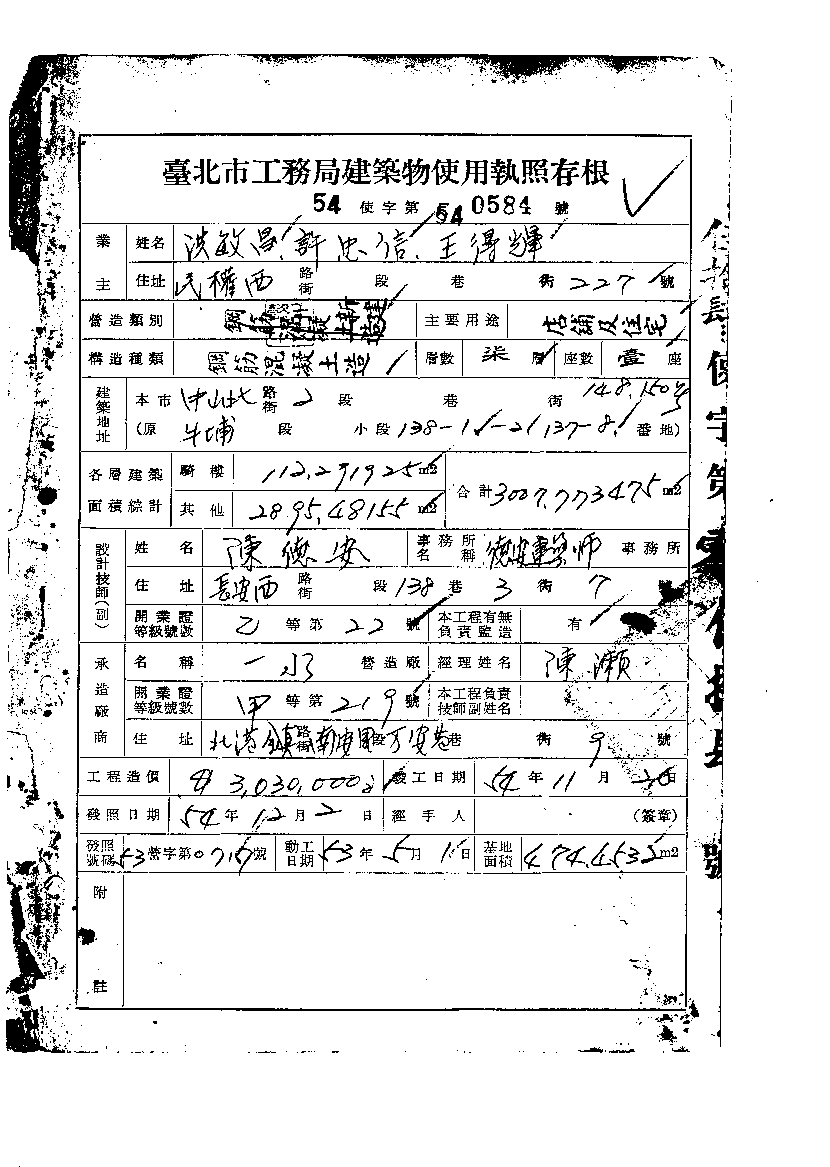 臺北市工務局建築物使用執照存根
54 使字第 540584 號
業主 姓名 洪敏昌、許忠信、王得輝
住址 民權西 路街 段 巷 衖 227 號
營造類別 新建 主要用途 店舖及住宅
構造種類 鋼筋混凝土造 層數 柒 層 座數 壹 座
建築地址 本市 中山北 路街 2 段 巷 衖 148.150 號
(原 牛埔 段 小段 138-1 137-8 番地)
各層建築面積綜計 騎樓 112,291925 m2 合計 3007,773475 m2
其他 2895,48155 m2
設計技師(副) 姓名 陳德安 事務所名稱 德安建築師 事務所
住址 長安西 路街 段 138 巷 3 衖 7 號
開業證等級號數 乙 等第 22 號 本工程有無負責監造 有
承造廠商 名稱 一水 營造廠 經理姓名 陳瀨
開業證等級號數 甲 等第 219 號 本工程負責技師副姓名
住址 北港鎮 路街 段 萬安巷 衖 9 號
工程造價 3,030,000 竣工日期 54 年 11 月 20 日
發照日期 54 年 12 月 2 日 經手人 (簽章)
發照號碼 53 營字第 0717 號 動工日期 53 年 5 月 15 日 基地面積 474.4535 m2
附註